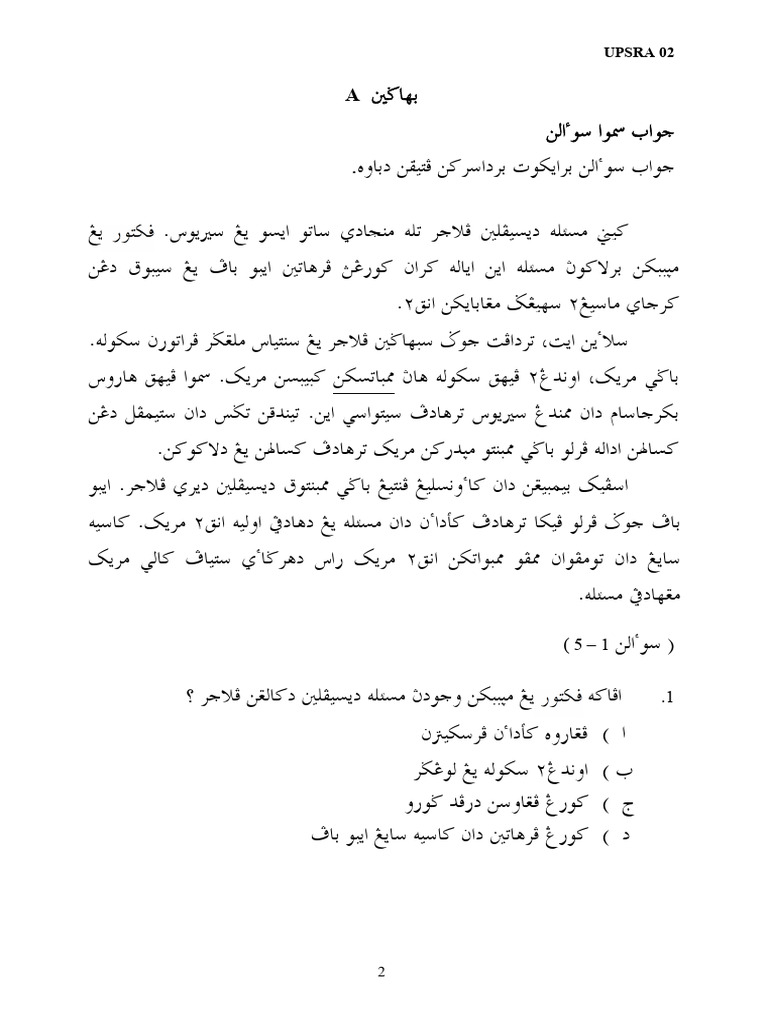 UPSRA 02
بهاݢين A
جواب سموا سوءالن
جواب سوءالن برايكوت برداسركن ڤتيقن دباوه.
كيني مسئله ديسيڤلين ڤلاجر تله منجادي ساتو ايسو يڠ سيريوس. فكتور يڠ
مڽببكن برلاكوڽ مسئله اين اياله كران كورڠڽ ڤرهاتين ايبو باڤ يڠ سيبوق دڠن
كرجاي ماسيڠ٢ سهيڠݢ مڠابايكن انق٢.
سلاءين ايت، تردافت جوݢ سبهاݢين ڤلاجر يڠ سنتياس ملڠݢر ڤراتورن سكوله.
باݢي مريك، اوندڠ٢ ڤيهق سكوله هاڽ ممباتسكن كبيبسن مريك. سموا ڤيهق هاروس
بكرجاسام دان ممندڠ سيريوس ترهادڤ سيتواسي اين. تيندقن تݢس دان ستيمڤل دڠن
كسالهن اداله ڤرلو باݢي ممبنتو مڽدركن مريك ترهادڤ كسالهن يڠ دلاكوكن.
اسڤيك بيمبيڠن دان كاءونسليڠ ڤنتيڠ باݢي ممبنتوق ديسيڤلين ديري ڤلاجر. ايبو
باڤ جوݢ ڤرلو ڤيكا ترهادڤ كأداءن دان مسئله يڠ دهادڤي اوليه انق٢ مريك. كاسيه
سايڠ دان تومڤوان ممڤو ممبواتكن انق٢ مريك راس دهرݢاءي ستياڤ كالي مريك
مڠهادڤي مسئله.
( سوءالن 1 – 5 )
1. اڤاكه فكتور يڠ مڽببكن وجودڽ مسئله ديسيڤلين دكالڠن ڤلاجر ؟
ا ) ڤڠاروه كأداءن ڤرسكيترن
ب ) اوندڠ٢ سكوله يڠ لوڠݢر
ج ) كورڠ ڤڠاوسن درڤد ݢورو
د ) كورڠ ڤرهاتين دان كاسيه سايڠ ايبو باڤ
2